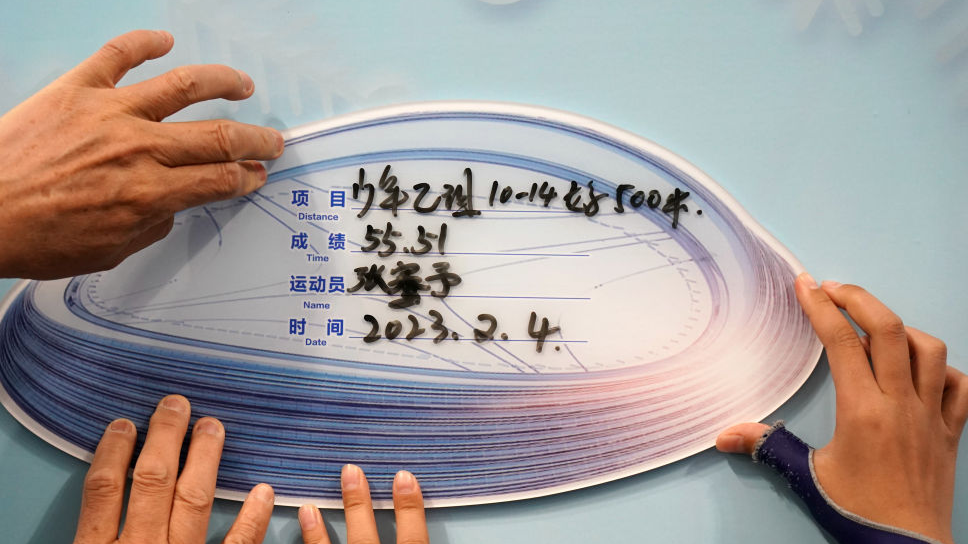 项 目 少年乙组 10-14女子500米.
Distance
成 绩 55.51
Time
运动员
Name
时 间 2023.2.4.
Date